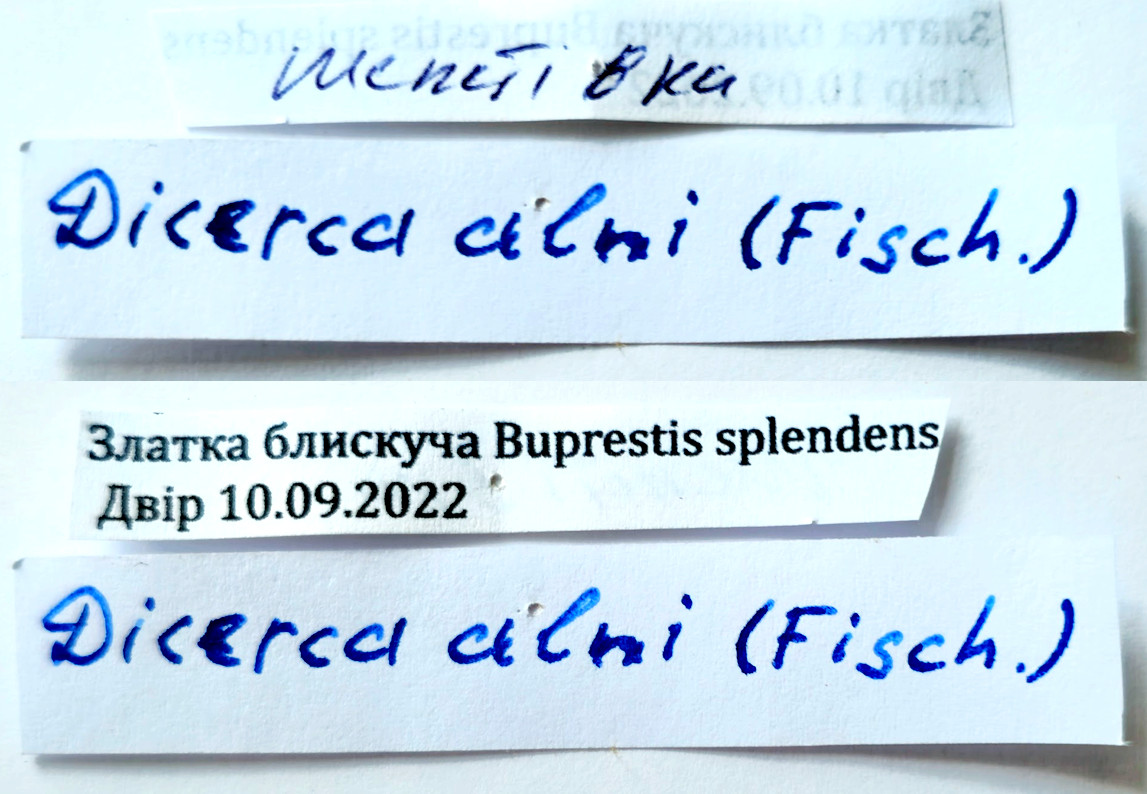 Шепетівка
Dicerca alni (Fisch.)
Златка блискуча Buprestis splendens
Двір 10.09.2022
Dicerca alni (Fisch.)